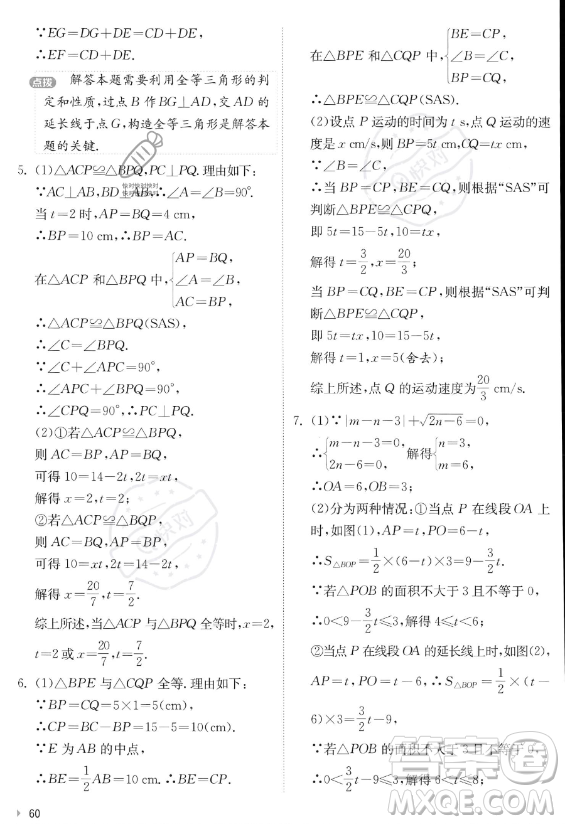 ∵EG=DG+DE=CD+DE,
∴EF=CD+DE.
点拨 解答本题需要利用全等三角形的判
定和性质,过点B作BG⊥AD,交AD的
延长线于点G,构造全等三角形是解答本
题的关键.
5. (1)△ACP≌△BPQ. 理由如下:
∵AC⊥AB,BD⊥AB,∴∠A=∠B=90°.
当t=2时,AP=BQ=4 cm,
∴BP=10 cm,∴BP=AC.
在△ACP和△BPQ中,{AP=BQ,
∠A=∠B,
AC=BP,
∴△ACP≌△BPQ(SAS).
∴∠C=∠BPQ.
∵∠C+∠APC=90°,
∴∠APC+∠BPQ=90°.
∴∠CPQ=90°.∴PC⊥PQ.
(2)①若△ACP≌△BPQ,
则AC=BP,AP=BQ,
可得10=14-2t,2t=xt,
解得t=2,x=2;
②若△ACP≌△BQP,
则AC=BQ,AP=BP,
可得10=xt,2t=14-2t,
解得x=20/7,t=7/2.
综上所述,当△ACP与△BPQ全等时,x=2,
t=2或x=20/7,t=7/2.
6. (1)△BPE与△CQP全等.理由如下:
∵BP=CQ=5×1=5(cm),
∴CP=BC-BP=15-5=10(cm).
∵E为AB的中点,
∴BE=1/2AB=10 cm.∴BE=CP.
60
在△BPE和△CQP中,{BE=CP,
∠B=∠C,
BP=CQ,
∴△BPE≌△CQP(SAS).
(2)设点P运动的时间为t s,点Q的运动的速
度是x cm/s,则BP=5t cm,CQ=xt cm.
∵∠B=∠C,
∴当BE=CQ,BP=CP时,根据“SAS”可
判断△BPE≌△CPQ,
即5t=15-5t,xt=10,
解得t=3/2,x=20/3;
当BP=CQ,BE=CP时,根据“SAS”可
判断△BPE≌△CQP,
即5t=xt,10=15-5t,
解得t=1,x=5(舍去);
综上所述,点Q的运动速度为20/3 cm/s.
7. (1)∵|m-n-3|+√(2n-6)=0,
∴{m-n-3=0,
2n-6=0, 解得{n=3,
m=6,
∴OA=6,OB=3.
(2)分为两种情况:①当点P在线段OA上
时,如图①,AP=t,PO=6-t,
∴S△BOP=1/2×(6-t)×3=9-3/2t.
∵若△POB的面积不大于3且不等于0,
∴0<9-3/2t≤3,解得4≤t<6;
②当点P在线段OA的延长线上时,如
图②,AP=t,PO=t-6,∴S△BOP=1/2×(t-
6)×3=3/2t-9.
∵若△POB的面积不大于3且不等于0,
∴0<3/2t-9≤3,解得6<t≤8.
快对
答案圈
MXQE.COM